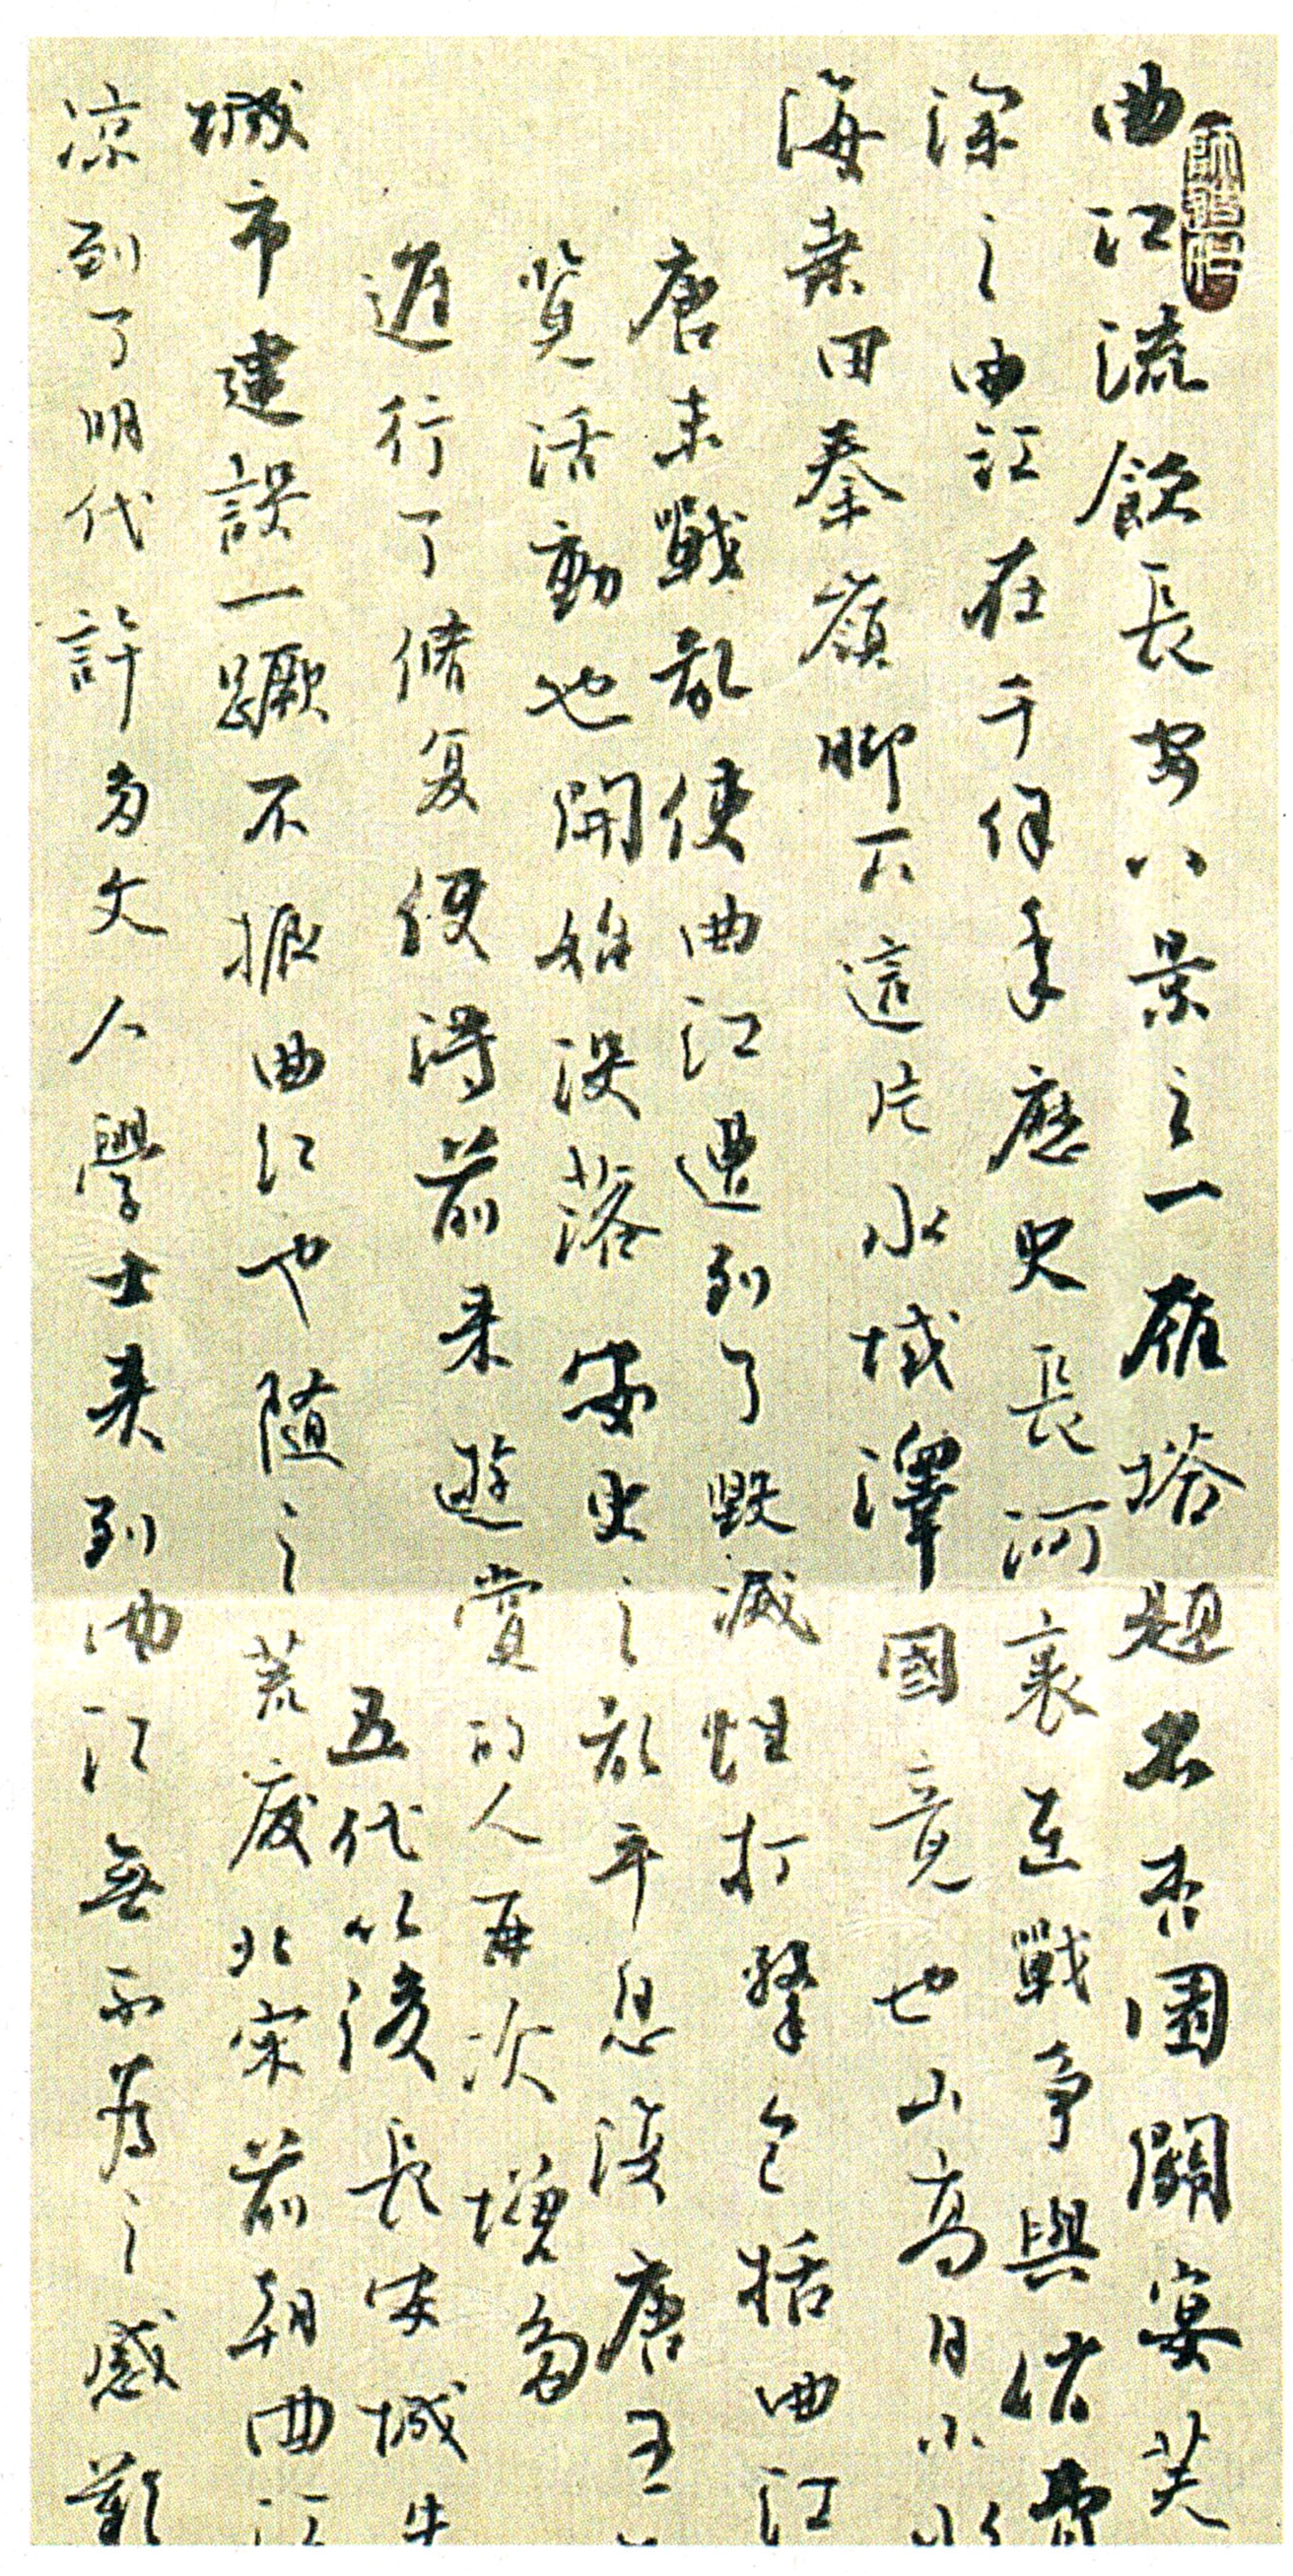 曲江流飲長安八景之一雁塔題名杏園關宴芙
深之曲江在千餘年歷史長河裏在戰爭與休
海桑田秦嶺脚下這片水域澤國竟也山高月小水
唐末戰亂使曲江遭到了毀滅性打擊包括曲江
覽活動也開始没落安史之亂平息後唐王
進行了脩复使得前來遊賞的人再次增多
五代以後長安城失
城市建設一蹶不振曲江也隨之荒廢北宋前朝曲江
凉到了明代許多文人學士来到曲江無不為之感歎